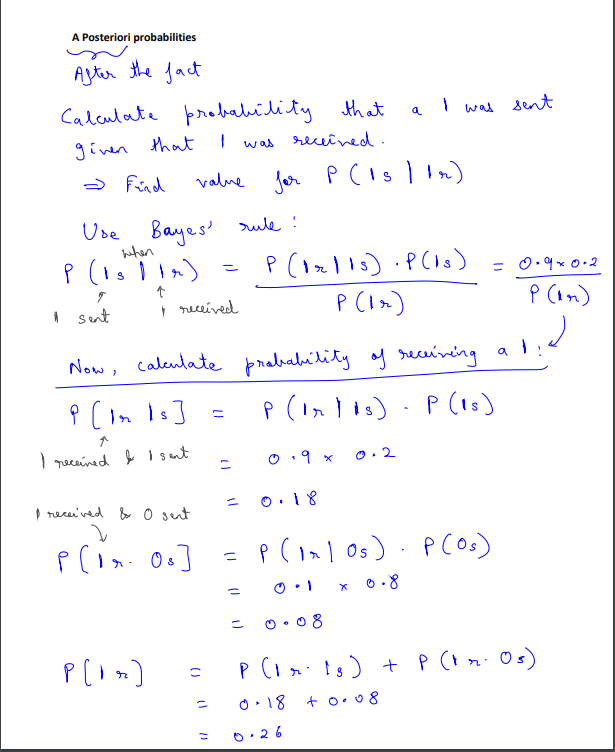 A Posteriori probabilities
After the fact
Calculate probability that a 1 was sent
given that 1 was received.
⇒ Find value for P(1s | 1r)
Use Bayes' rule:
when
P(1s | 1r) = P(1r|1s) · P(1s) / P(1r) = 0.9 × 0.2 / P(1r)
1 sent 1 received
Now, calculate probability of receiving a 1:
P[1r 1s] = P(1r|1s) · P(1s)
1 received & 1 sent = 0.9 × 0.2
= 0.18
1 received & 0 sent
P[1r · 0s] = P(1r|0s) · P(0s)
= 0.1 × 0.8
= 0.08
P[1r] = P(1r · 1s) + P(1r · 0s)
= 0.18 + 0.08
= 0.26